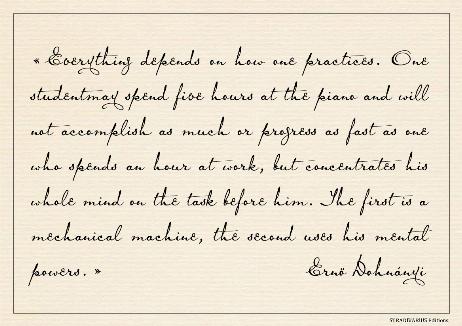 « Everything depends on how one practices. One
studentmay spend five hours at the piano and will
not accomplish as much or progress as fast as one
who spends an hour at work, but concentrates his
whole mind on the task before him. The first is a
mechanical machine, the second uses his mental
powers. » Ernö Dohnányi
STRADIVARIUS Editions